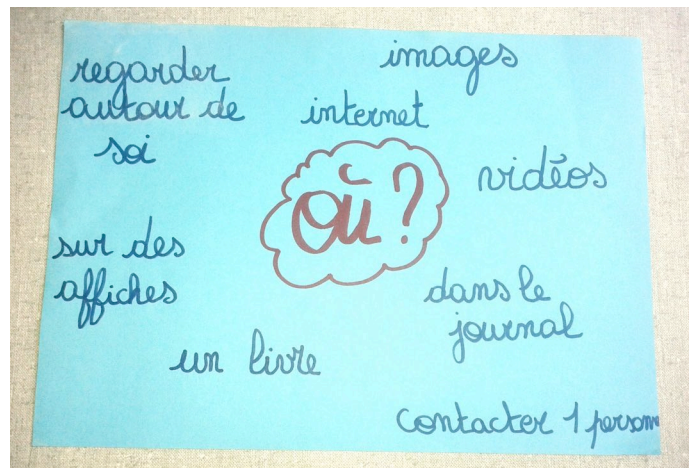 images
regarder
autour de
soi
internet
vidéos
où ?
sur des
affiches
dans le
journal
un livre
contacter 1 personne